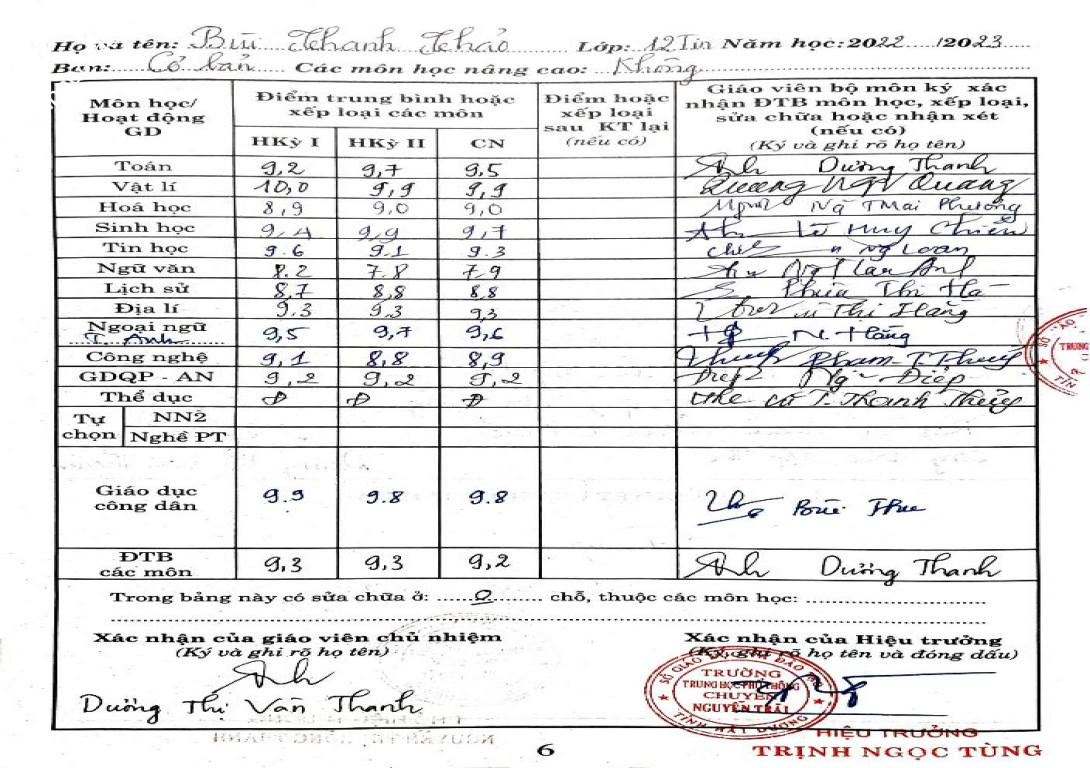 Họ và tên: Bùi Thanh Thảo Lớp: 12 Tin Năm học: 2022 /2023
Ban: Cơ bản Các môn học nâng cao: Không
Môn học/ Hoạt động GD
Điểm trung bình hoặc xếp loại các môn
Điểm hoặc xếp loại sau KT lại (nếu có)
Giáo viên bộ môn ký xác nhận ĐTB môn học, xếp loại, sửa chữa hoặc nhận xét (nếu có) (Ký và ghi rõ họ tên)
HKỳ I HKỳ II CN
Toán 9,2 9,7 9,5 Dương Thanh
Vật lí 10,0 9,9 9,9 Quang
Hoá học 8,9 9,0 9,0 Mai Phương
Sinh học 9,4 9,9 9,7 Huy Chiến
Tin học 9.6 9.1 9.3 Loan
Ngữ văn 8.2 7.8 7.9
Lịch sử 8,7 8,8 8,8 Thị Hà
Địa lí 9.3 9,3 9,3 Thị Hằng
Ngoại ngữ T. Anh 9,5 9,7 9,6 N. Hằng
Công nghệ 9,1 8,8 8,9 Phạm T Thuý
GDQP - AN 9,2 9,2 9,2 Điệp
Thể dục Đ Đ Đ T. Thanh Thủy
Tự chọn NN2
Nghề PT
Giáo dục công dân 9.9 9.8 9.8 Bùi Thu
ĐTB các môn 9,3 9,3 9,2 Dương Thanh
Trong bảng này có sửa chữa ở: 0 chỗ, thuộc các môn học:
Xác nhận của giáo viên chủ nhiệm
(Ký và ghi rõ họ tên)
Dương Thị Vân Thanh
Xác nhận của Hiệu trưởng
(Ký, ghi rõ họ tên và đóng dấu)
TRƯỜNG
TRUNG HỌC PHỔ THÔNG
CHUYÊN
NGUYỄN TRÃI
TỈNH HẢI DƯƠNG
HIỆU TRƯỞNG
TRỊNH NGỌC TÙNG
6